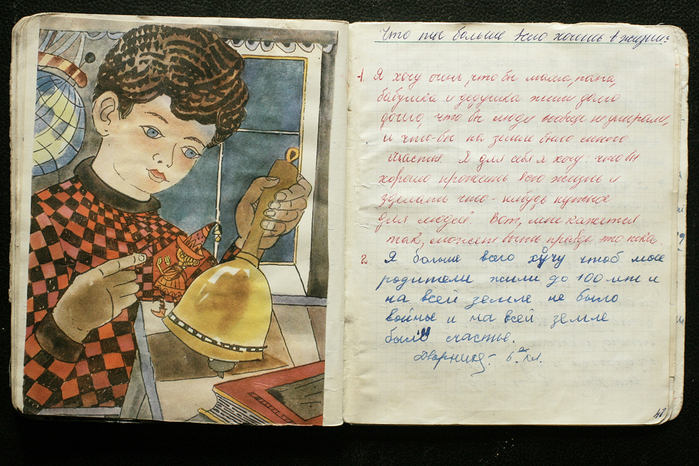 Что ты больше всего хочешь в жизни?
1. Я хочу очень, что бы мама, папа,
бабушка и дедушка жили долго
долго, что бы люди вообще не умирали,
и что-бы на земле было много
счастья. Я для себя я хочу: что бы
хорошо прожить всю жизнь и
сделать что-нибудь нужное
для людей. Вот, мне кажется
так, может быть правда это пока.
2. Я больше всего хучу чтоб мое
родители жили до 100 лет и
на всей земле не было
войны и на всей земле
было счастье.
6 кл.